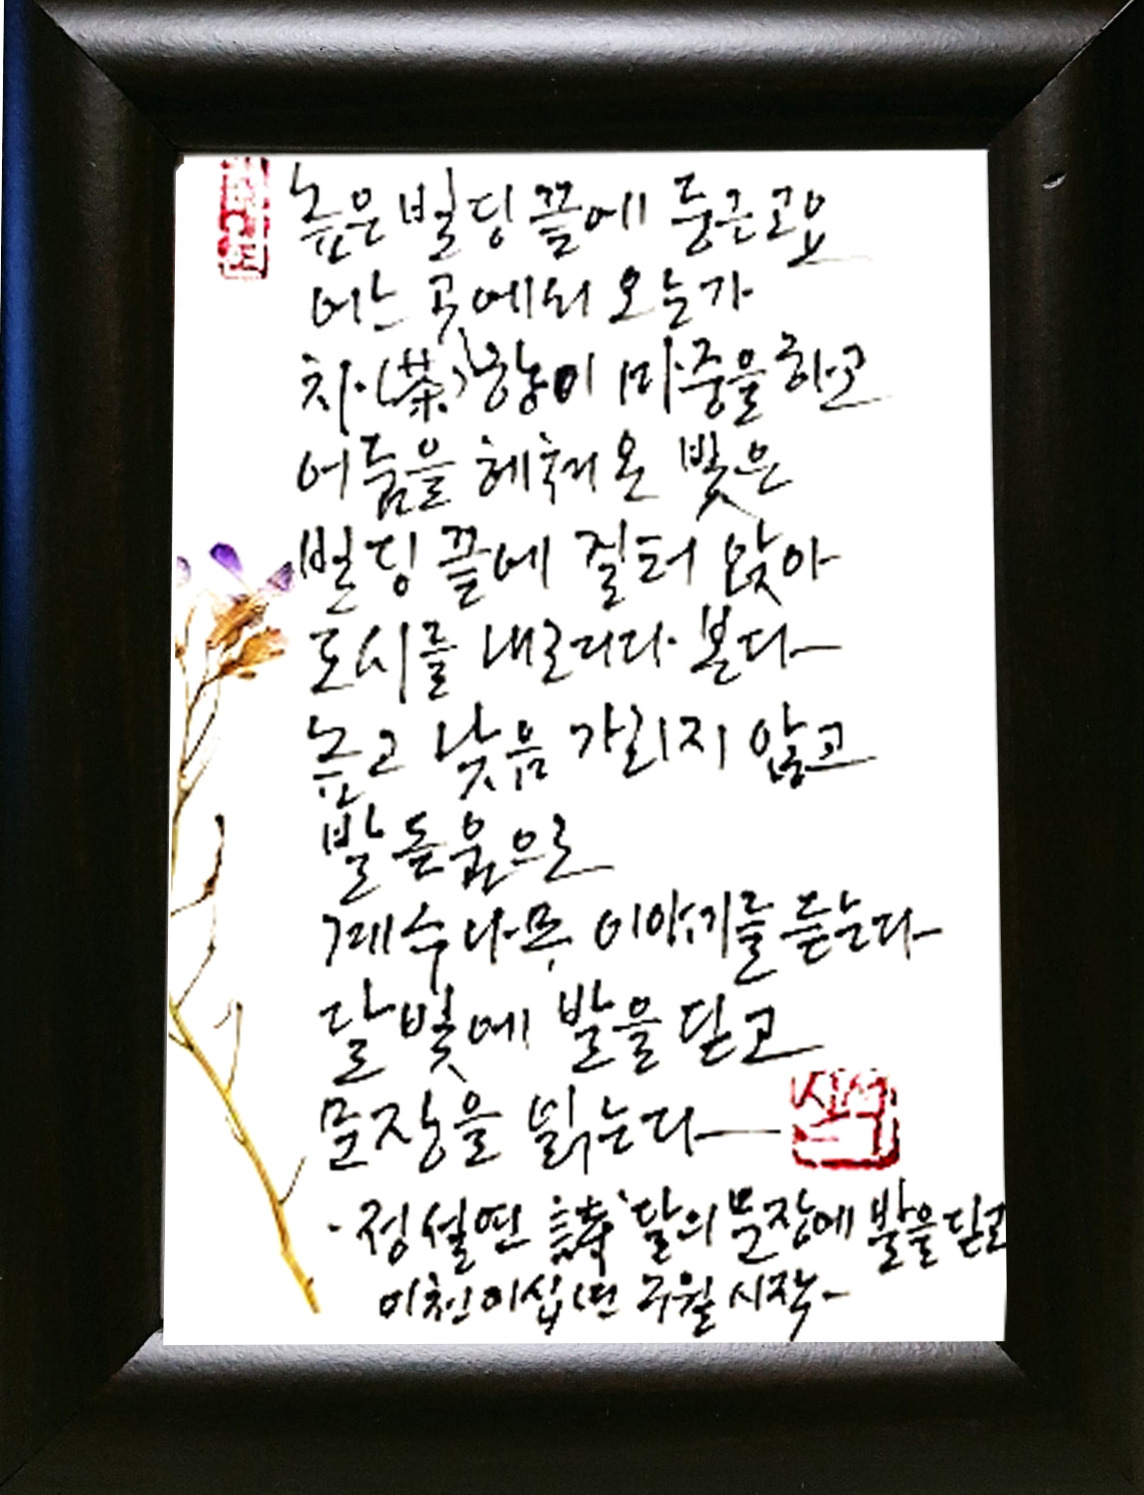 높은 빌딩 끝에 둥근 고요
어느 곳에서 오는가
차(茶)향이 마중을 하고
어둠을 헤쳐 온 빛은
빌딩 끝에 걸터 앉아
도시를 내려다 본다
높고 낮음 가리지 않고
발 돋움으로
계수나무 이야기를 듣는다
달빛에 발을 딛고
문장을 읽는다
- 정설연 詩 '달의 문장에 발을 딛고
이천이십년 구월 시작-